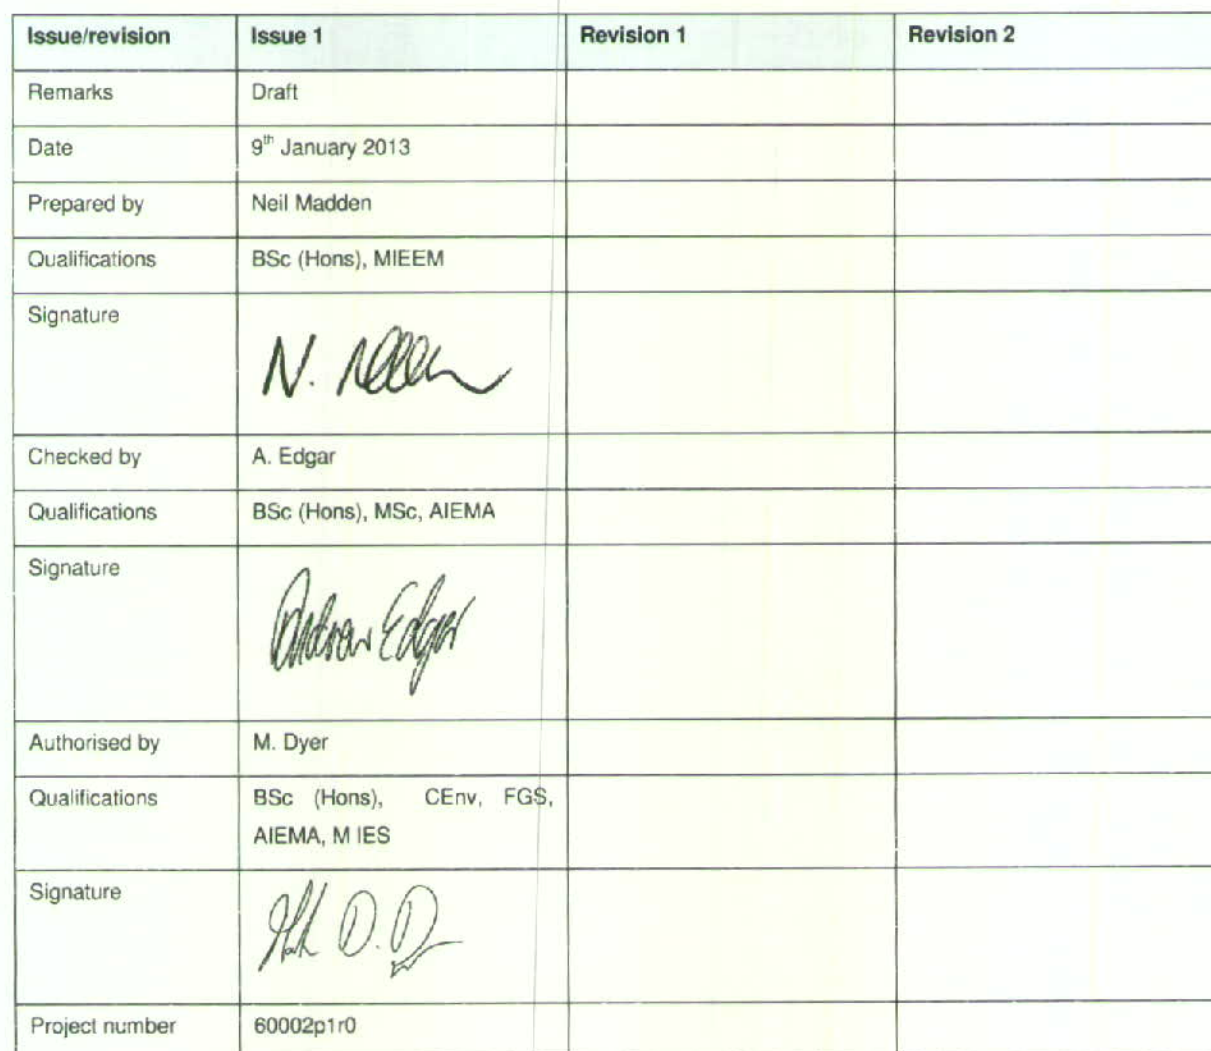 Issue/revision Issue 1 Revision 1 Revision 2
Remarks Draft
Date 9th January 2013
Prepared by Neil Madden
Qualifications BSc (Hons), MIEEM
Signature
N.
Checked by A. Edgar
Qualifications BSc (Hons), MSc, AIEMA
Signature
Andrew Edgar
Authorised by M. Dyer
Qualifications BSc (Hons), CEnv, FGS,
AIEMA, M IES
Signature
D. D
Project number 60002p1r0